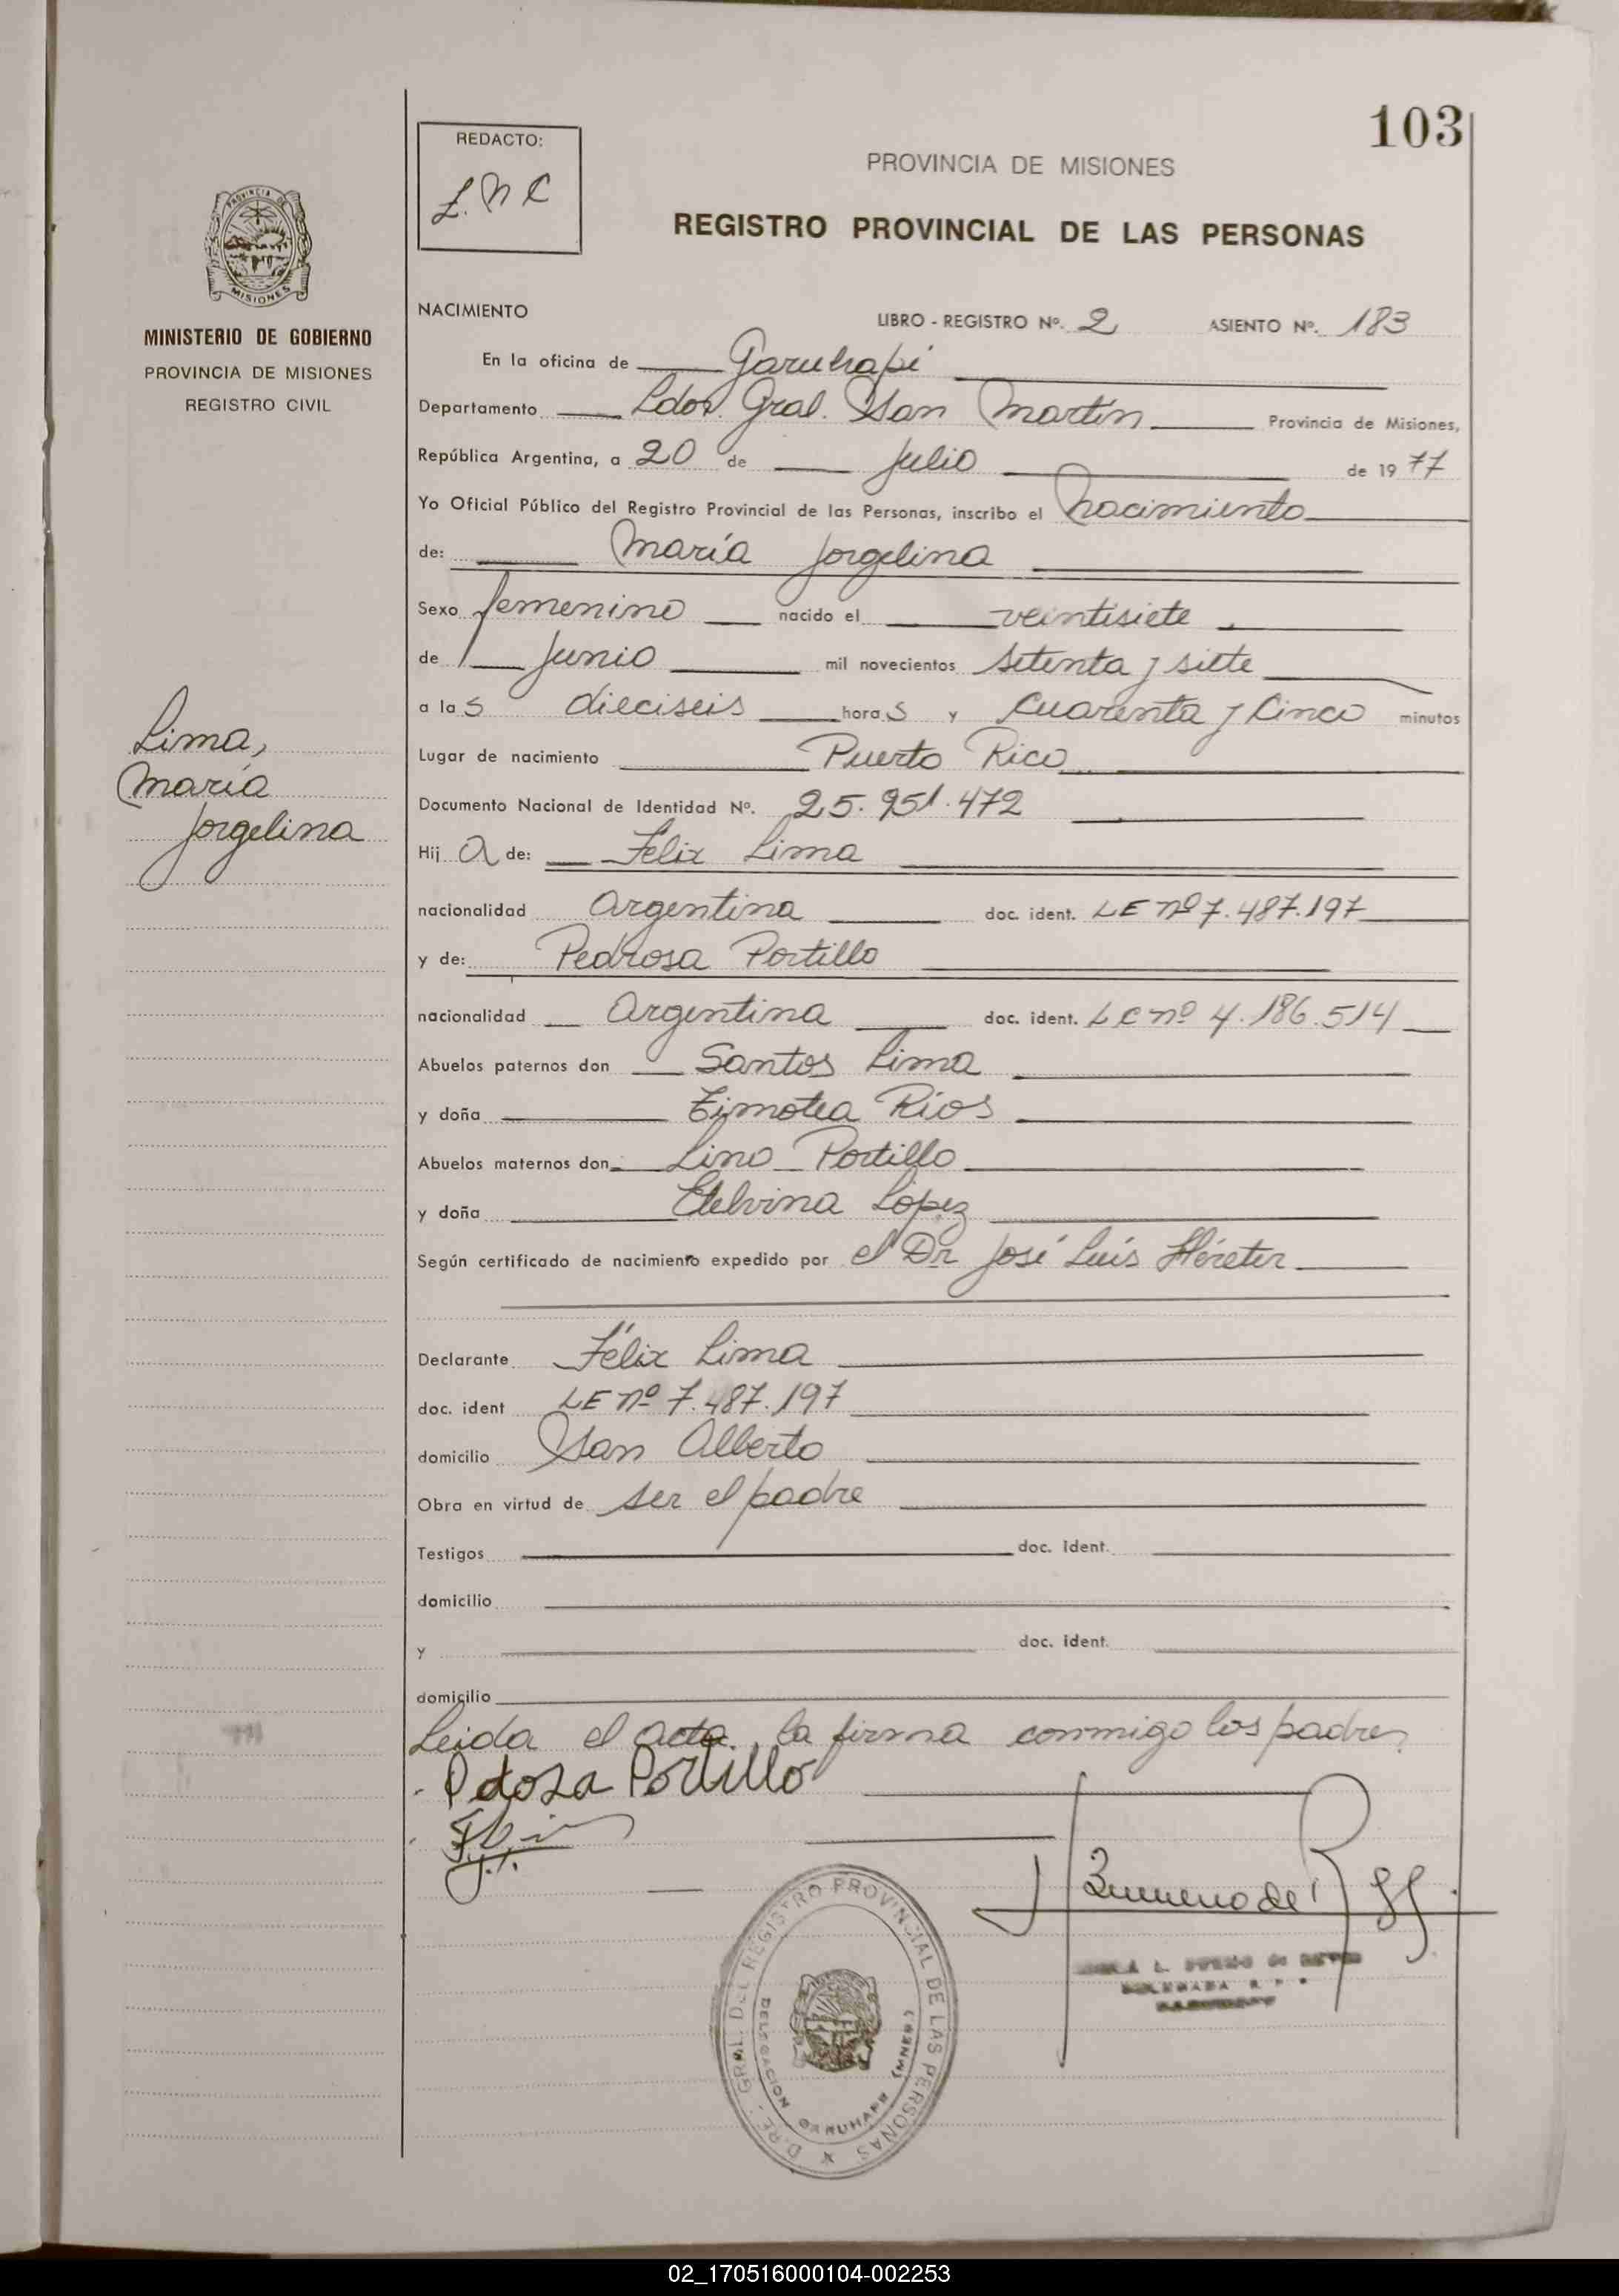 103
REDACTO:
PROVINCIA DE MISIONES
REGISTRO PROVINCIAL DE LAS PERSONAS
PROVINCIA DE MISIONES
MINISTERIO DE GOBIERNO
PROVINCIA DE MISIONES
REGISTRO CIVIL
NACIMIENTO LIBRO - REGISTRO Nº. 2 ASIENTO Nº. 183
En la oficina de Garuhapi
Departamento Ldor. Gral. San Martín Provincia de Misiones,
República Argentina, a 20 de Julio de 1977
Yo Oficial Público del Registro Provincial de las Personas, inscribo el nacimiento
de: María Jorgelina
Sexo femenino nacido el veintisiete
de Junio mil novecientos setenta y siete
a las dieciseis horas y cuarenta y cinco minutos
Lima,
María
Jorgelina
Lugar de nacimiento Puerto Rico
Documento Nacional de Identidad Nº. 25.951.472
Hija de: Félix Lima
nacionalidad Argentina doc. ident. LE nº 7.487.197
y de: Pedrosa Portillo
nacionalidad Argentina doc. ident. LC nº 4.186.514
Abuelos paternos don Santos Lima
y doña Timotea Ríos
Abuelos maternos don Lino Portillo
y doña Etelvina López
Según certificado de nacimiento expedido por el Dr José Luís Héreter
Declarante Félix Lima
doc. ident LE nº 7.487.197
domicilio San Alberto
Obra en virtud de ser el padre
Testigos doc. ident.
domicilio
y doc. ident.
domicilio
Leida el acta, la firma conmigo los padres
Pdosa Portillo
D.RE. GRAL. DEL REGISTRO PROVINCIAL DE LAS PERSONAS
DELEGACION GARUHAPI (MNES)
02_170516000104-002253